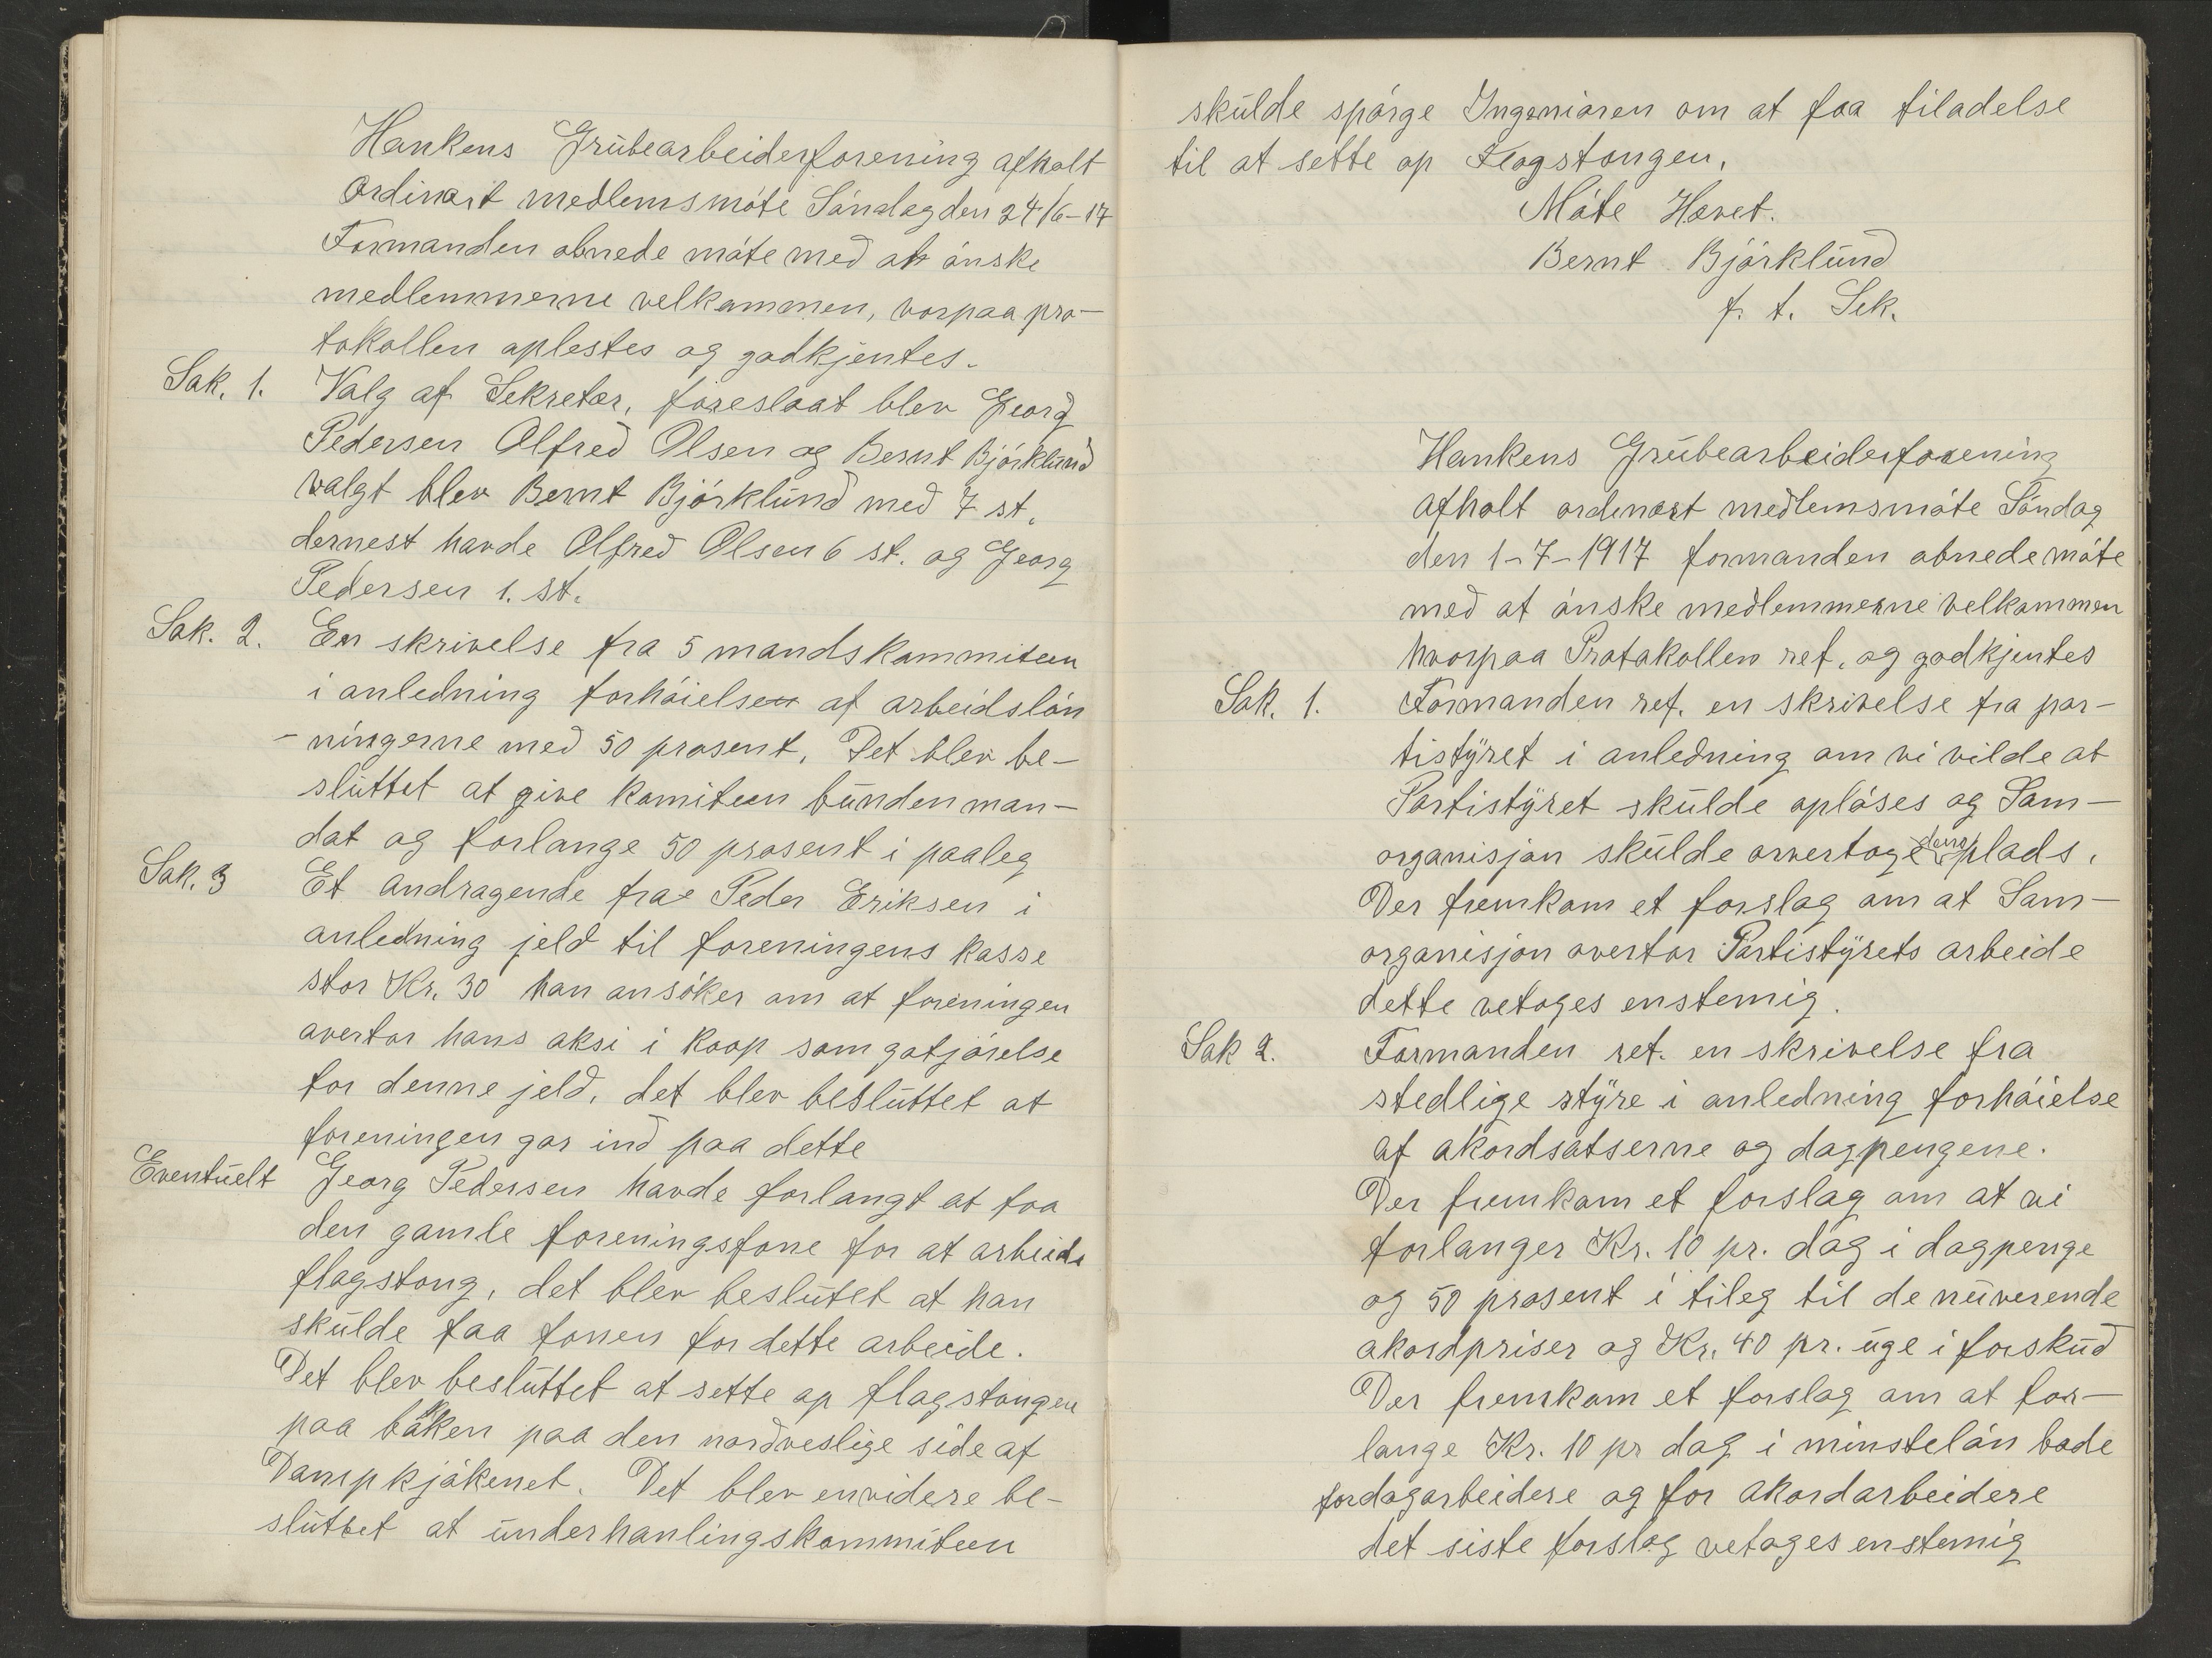 Hankens Grubearbeiderforening afholt
Ordinært medlemsmóte Sóndag den 24/6-17
Formanden obnede móte med at ónske
medlemmerne velkommen, vorpaa pro-
tokollen oplestes og godkjentes.
Sak. 1. Valg af Sekretær, foreslaat blev Georg
Pedersen Alfred Olsen og Bernt Bjórklund
valgt blev Bernt Bjórklund med 7 st.
dernest havde Alfred Olsen 6 st. og Georg
Pedersen 1. st.
Sak. 2. En skrivelse fra 5 mandskommiteen
i anledning forhóielsen af arbeidslón
-ningerne med 50 prosent. Det blev be-
sluttet at give komiteen bunden man-
dat og forlange 50 prosent i paaleg
Sak. 3 Et andragende fra Peder Eriksen i
anledning jeld til foreningens kasse
stor Kr. 30 han ansóker om at foreningen
overtar hans aksi i koop som gotjórelse
for denne jeld, det blev besluttet at
foreningen gar ind paa dette
Eventuelt Georg Pedersen havde forlangt at faa
den gamle foreningsfane for at arbeide
flagstang, det blev beslutet at han
skulde faa fanen for dette arbeide.
Det blev besluttet at sette op flagstangen
paa bakken paa den nordveslige side af
Dampkjókenet. Det blev envidere be-
sluttet at underhanlingskommiteen
skulde spórge Ingenióren om at faa tiladelse
til at sette op Flagstangen.
Móte Hævet.
Bernt Bjórklund
f. t. Sek.
Hankens Grubearbeiderforening
afholt ordenært medlemsmóte Sóndag
den 1-7-1917 formanden obnede móte
med at ónske medlemmerne velkommen
hvorpaa Protokollen ref. og godkjentes
Sak. 1. Formanden ref. en skrivelse fra par-
tistyret i anledning om vi vilde at
Partistyret skulde oplóses og Sam-
organisjon skulde overtage deres plads.
Der fremkom et forslag om at Sam-
organisjon overtar Partistyrets arbeide
dette vetoges enstemig.
Sak 2. Formanden ref. en skrivelse fra
stedlige styre i anledning forhóielse
af akordsatserne og dagpengene.
Der fremkom et forslag om at vi
forlanger Kr. 10 pr. dag i dagpenge
og 50 prosent i tileg til de nuverende
akordpriser og Kr. 40 pr. uge i forskud
Der fremkom et forslag om at for-
lange Kr. 10 pr dag i minstelón bade
for dagarbeidere og for akordarbeidere
det siste forslag vetoges enstemig